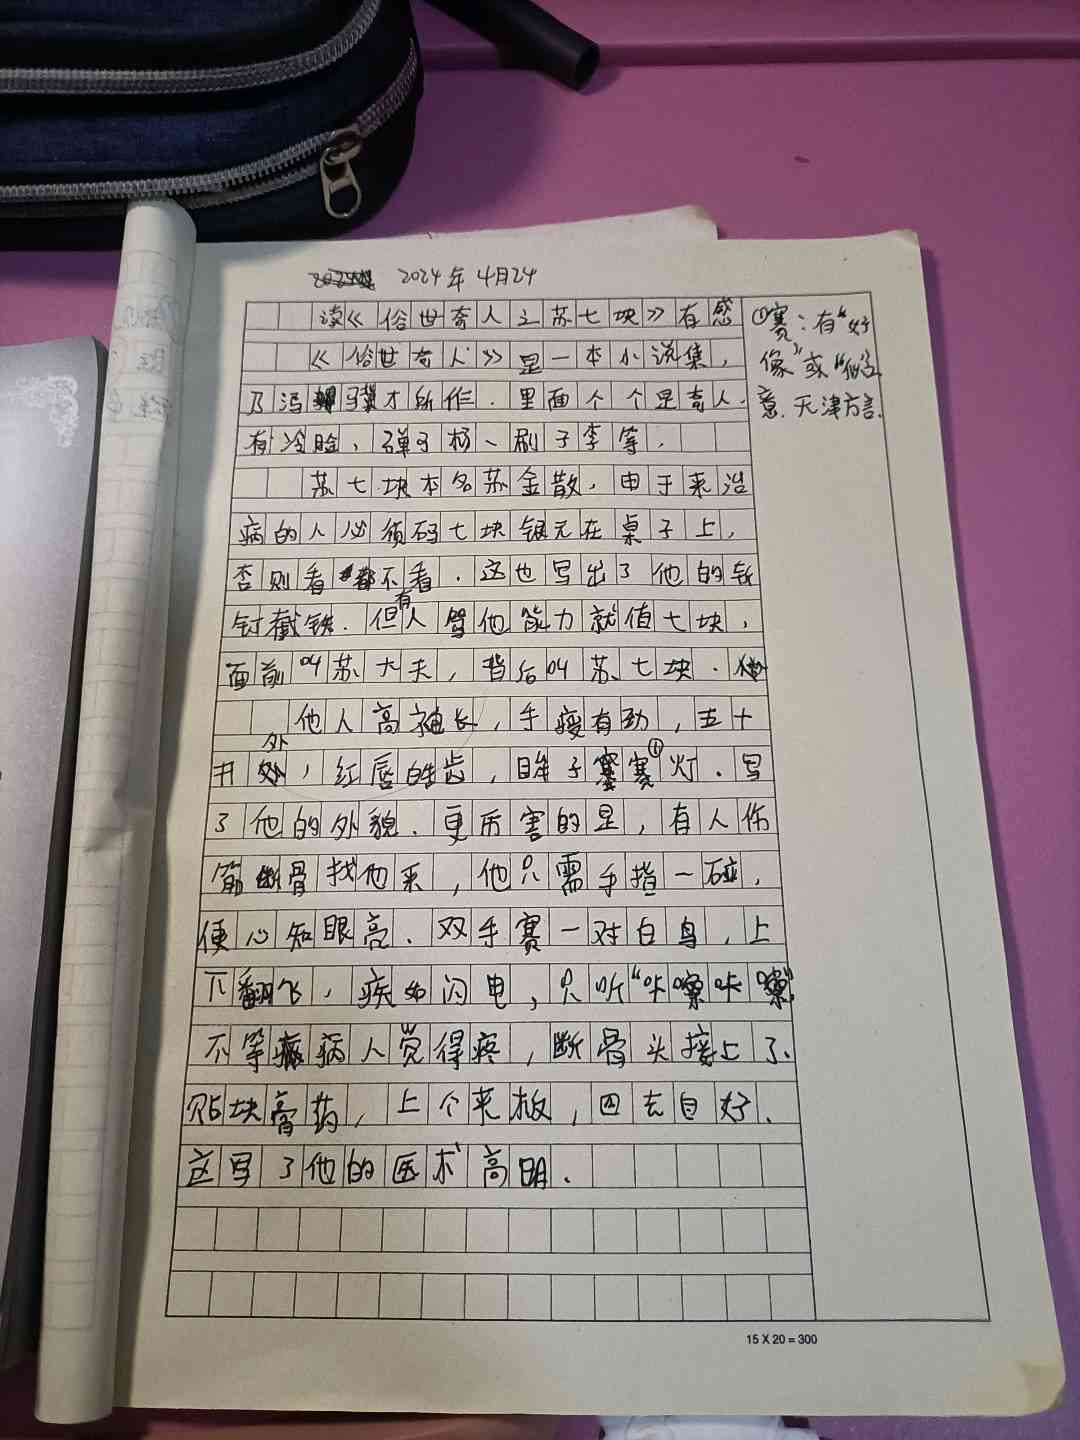 2024年4月24
读《俗世奇人之苏七块》有感
《俗世奇人》是一本小说集，
乃冯骥才所作．里面个个是奇人．
有冷脸、弹子杨、刷子李等．
苏七块本名苏金散，由于来治
病的人必须码七块银元在桌子上，
否则看都不看．这也写出了他的斩
钉截铁．但有人骂他能力就值七块，
面前叫苏大夫，背后叫苏七块．
他人高袖长，手瘦有劲，五十
开外，红唇皓齿，眸子赛灯．写
了他的外貌．更厉害的是，有人伤
筋断骨找他来，他只需手指一碰，
便心知眼亮．双手赛一对白鸟，上
下翻飞，疾如闪电，只听“咔嚓咔嚓”
不等病人觉得疼，断骨头接上了．
贴块膏药，上个夹板，回去自好．
这写了他的医术高明．
①赛：有“好
像”或“似”
意．天津方言．
15 X 20 = 300